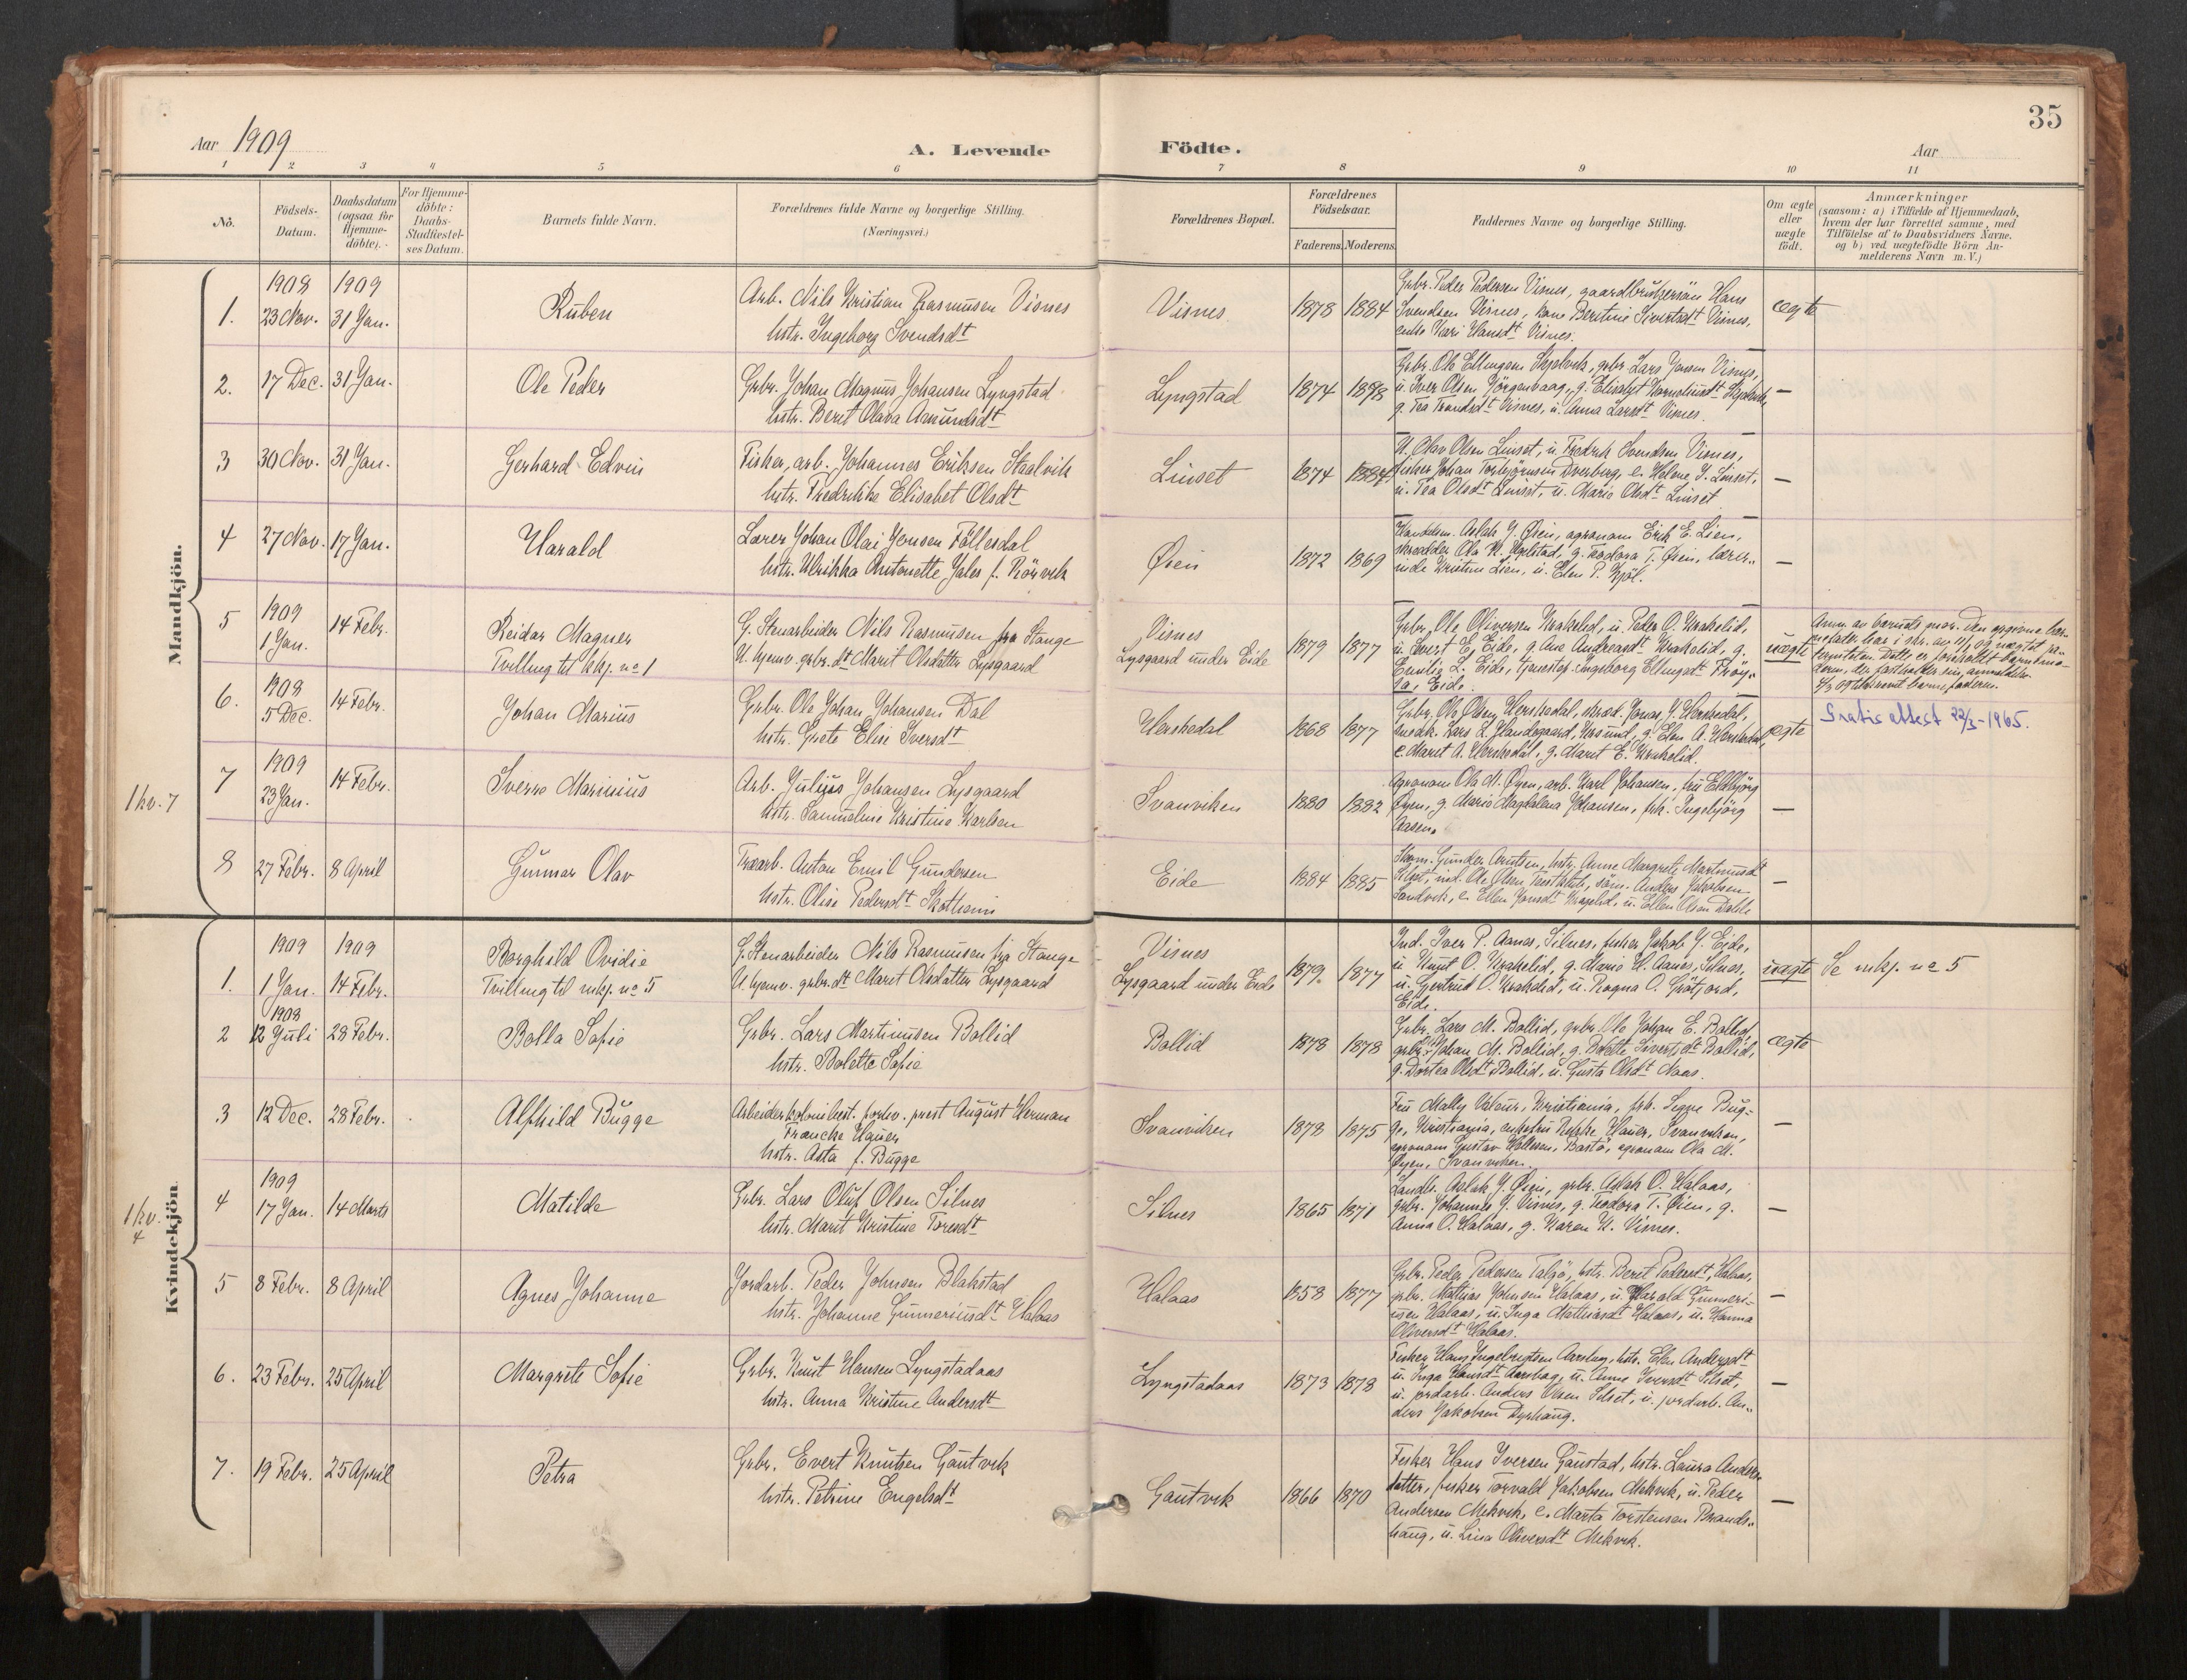 35
Aar 1909
A. Levende
Födte.
Aar
1 2 3 4 5 6 7 8 9 10 11
No.
Födsels-Datum.
Daabsdatum (ogsaa for Hjemmedöbte).
For Hjemmedöbte: Daabs-Stadfæstelses Datum.
Barnets fulde Navn.
Forældrenes fulde Navne og borgerlige Stilling.
(Næringsvei.)
Forældrenes Bopæl.
Forældrenes Födselsaar.
Faderens. Moderens.
Faddernes Navne og borgerlige Stilling.
Om ægte eller uægte födt.
Anmærkninger
(saasom: a) i Tilfælde af Hjemmedaab,
hvem der har forrettet samme, med
Tilföielse af to Daabsvidners Navne.
og b) ved uægtefödte Börn An-
melderens Navn m. V.)
Mandkjön.
1. 1908 23 Nov. 1909 31 Jan. Ruben
Arb. Nils Kristian Rasmusen Visnes
hstr. Ingeborg Svendsdt
Visnes 1878 1884
Grbr. Peder Pedersen Visnes, gaardbrukersön Hans
Svendsen Visnes, kone Beritine Sivertsdt Visnes,
enke Kari Hansdt Visnes.
ægte
2. 17 Dec. 31 Jan. Ole Peder
Grbr. Johan Magnus Johansen Lyngstad
hstr. Beret Olava Amundsdt
Lyngstad 1874 1878
Grbr. Ole Ellingsen Skjelvik, grbr. Lars Jensen Visnes,
u. Iver Olsen Jörgenvaag, g. Elisabet Korneliusdt Skjelvik,
g. Tea Trondsdt Visnes, u. Anna Larsdt Visnes.
—
3 30 Nov. 31 Jan. Gerhard Edvin
Fisker, arb. Johannes Eriksen Staalvik
hstr. Fredrikke Elisabet Olsdt
Linset 1874 1884
U. Olav Olsen Linset, u. Fredrik Svendsen Visnes,
fisker Johan Torbjörnsen Dverberg, e. Helene J. Linset,
u. Tea Olsdt Linset, u. Marie Olsdt Linset
—
4 27 Nov. 17 Jan. Harald
Lærer Johan Olai Jensen Föllesdal
hstr. Ulrikka Antonette Jales f. Rörvik
Øien 1872 1869
Handelsm. Aslak J. Øien, agronom Erik E. Lien,
skrædder Ole K. Vaglstad, g. Teodora T. Øien, lærer-
inde Kristine Lien, u. Elen P. Kjöl.
—
5 1909 1 Jan. 14 Febr. Reidar Magner
Tvilling til kkj. no 1
G. Stenarbeider Nils Rasmusen fra Stange
U. hjemv. grbr.dt Marit Olsdatter Lysgaard
Visnes
Lysgaard under Eide 1879 1877
Grbr. Ole Oliversen Krakelid, u. Peder O. Krakelid,
u. Sivert E. Eide, g. Ane Andreasdt Krakelid, g.
Emilie L. Eide, tjenestep. Ingeborg Ellingsdt Fröy-
sa, Eide.
uægte
Anm. av barnets mor. Den opgivne bar-
nefader har i skr. av 11/2 09 nægtet pa-
terniteten. Dette er foreholdt barnemo-
deren, der fastholder sin anmeldelse.
6. 1908 5 Dec. 14 Febr. Johan Marius
Grbr. Ole Johan Johansen Dal
hstr. Grete Elise Iversdt
Henskedal 1868 1877
Grbr. Ole Olsen Henskedal, skræd. Jonas J. Henskedal,
snedk. Lars L. Flandegaard, Ursund, g. Elen A. Henskedal,
e. Maret A. Henskedal, g. Marit E. Krakelid.
ægte
Gratis attest 22/3-1965.
1 kv. 7
7 1909 23 Jan. 14 Febr. Sverre Marinius
Arb. Julius Johansen Lysgaard
hstr. Sanneline Kristine Karlsen
Svanviken 1880 1882
Agronom Ola M. Øyen, arb. Karl Johansen, fru Eldbjörg
Øyen, g. Marie Magdalena Johansen, frk. Ingebjörg
Aasen.
—
8 27 Febr. 8 April Gunnar Olav
Træarb. Anton Emil Gundersen
hstr. Olise Pedersdt Skotheim
Eide 1884 1885
Gunder Arntsen, hstr. Anne Margrete Martinusdt
Jakobsen
Sandvik, e. Ellen Jonsdt Krakelid, u. Ellen Olsen Dahle
—
Kvindekjön
1. 1909 1 Jan. 1909 14 Febr. Borghild Ovidie
Tvilling til mkj. no 5
G. Stenarbeider Nils Rasmusen fra Stange
U. hjemv. grbr.dt Marit Olsdatter Lysgaard
Visnes
Lysgaard under Eide 1879. 1877
Ind. Iver P. Aanes, Silnes, fisker Jakob J. Eide,
u. Knut O. Krakelid, g. Marie H. Aanes, Silnes,
u. Gjertrud O. Krakelid, u. Ragna O. Gröfjord,
Eide.
uægte
Se mkj. no 5
2 1908 12 Juli 28 Febr. Bolla Sofie
Grbr. Lars Martinusen Bollid
hstr. Bolette Sofie
Bollid 1878 1878
Grbr. Lars M. Bollid, grbr. Ole Johan E. Bollid,
grbr. Johan M. Bollid, g. Bolette Sivertsdt Bollid,
g. Dortea Olsdt Bollid, u. Gusta Olsdt Naas.
ægte
3 12 Dec. 28 Febr. Alfhild Bugge
Arbeiderkolonibest. forhv. prest August Herman
Francke Hauer
hstr. Asta f. Bugge
Svanviken 1878 1875
Fru Mally Valeur, Kristiania, frk. Signe Bug-
ge, Kristiania, enkefru Rebekke Hauer, Svanviken,
agronom Gustav Hallesen, Bastö, agronom Ola M.
Øyen, Svanviken.
—
1 kv. 4
4 1909 17 Jan. 14 Marts Matilde
Grbr. Lars Oluf Olsen Silnes
hstr. Marit Kristine Toresdt
Silnes 1865 1871
Landh. Aslak J. Øien, grbr. Aslak O. Halaas,
grbr. Johannes J. Visnes, g. Teodora T. Øien, g.
Anna O. Halaas, g. Karen K. Visnes.
—
5 8 Febr. 8 April Agnes Johanne
Jordarb. Peder Johnsen Blakstad
hstr. Johanne Gunneriusdt Halaas
Halaas 1858 1877
Grbr. Peder Pedersen Talgö, hstr. Beret Pedersdt, Halaas,
grbr. Mathias Johnsen Halaas, u. Harald Gunneri-
usen Halaas, u. Inga Mathiasdt Halaas, u. Hanna
Oliversdt Halaas.
—
6. 23 Febr. 25 April Margrete Sofie
Grbr. Knut Hansen Lyngstadaas
hstr. Anna Kristine Andersdt
Lyngstadaas 1873 1878
Fisker Hans Ingebrigtsen Aarsbog, hstr. Elen Andersdt
u. Inga Hansdt Aarsbog, u. Anne Iversdt Silset,
u. jordarb. Anders Olsen Silset, u. jordarb. An-
ders Jakobsen Dyrhaug.
—
7. 19 Febr. 25 April Petra
Grbr. Evert Knutsen Gautvik
hstr. Petrine Engelsdt
Gautvik 1866 1870
Fisker Hans Iversen Gaustad, hstr. Laura Anders-
datter, fisker Torvald Jakobsen Mekvik, u. Peder
Andersen Mekvik, e. Marta Torstensen Brands-
haug, u. Lina Oliversdt Mekvik.
—